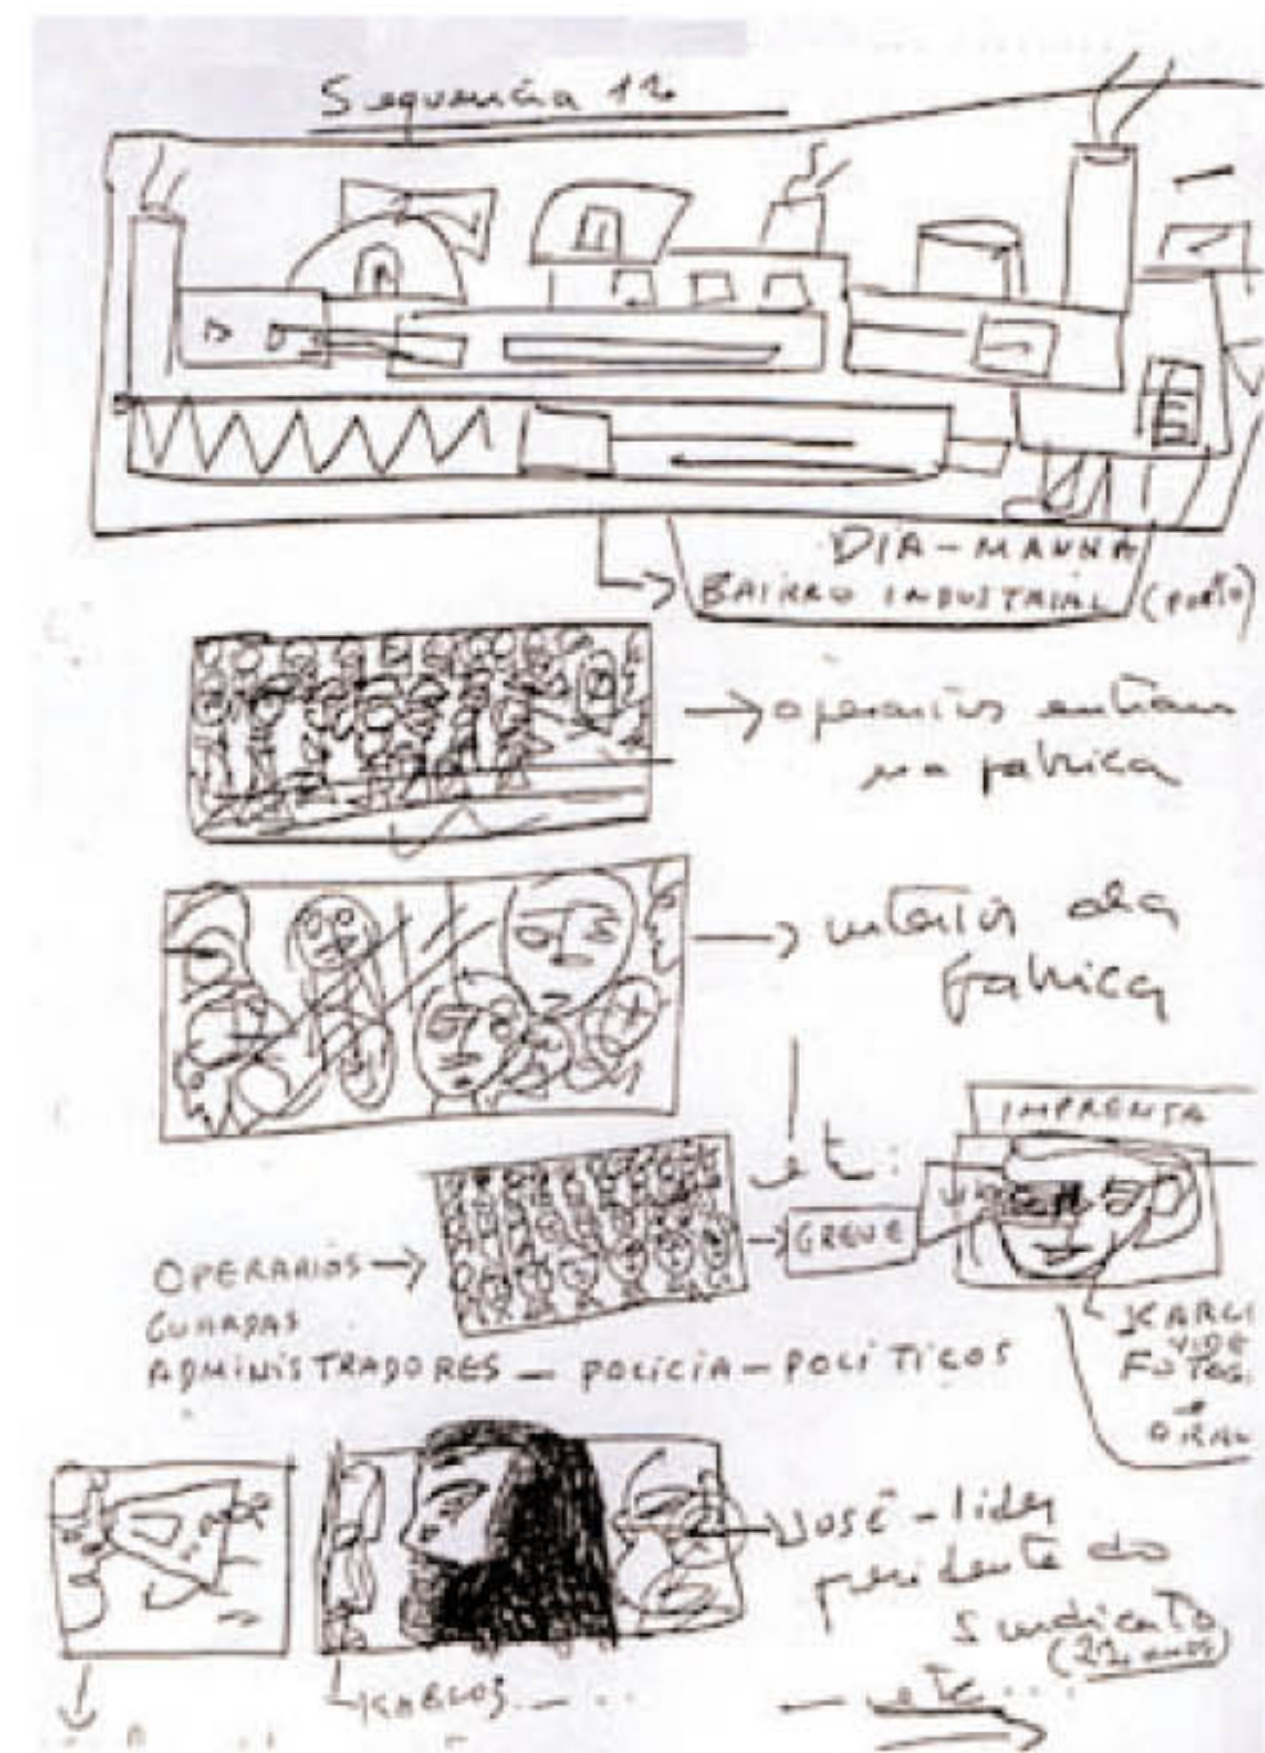 Sequencia 12
DIA - MANHA
BAIRRO INDUSTRIAL (PORTO)
operarios entram
na fabrica
interior da
fabrica
IMPRENSA
etc:
GREVE
OPERARIOS
GUARDAS
ADMINISTRADORES - POLICIA - POLÍTICOS
FOTOG.
e
ORAL
José - lider
presidente do
Sindicato
KARLOS
etc...